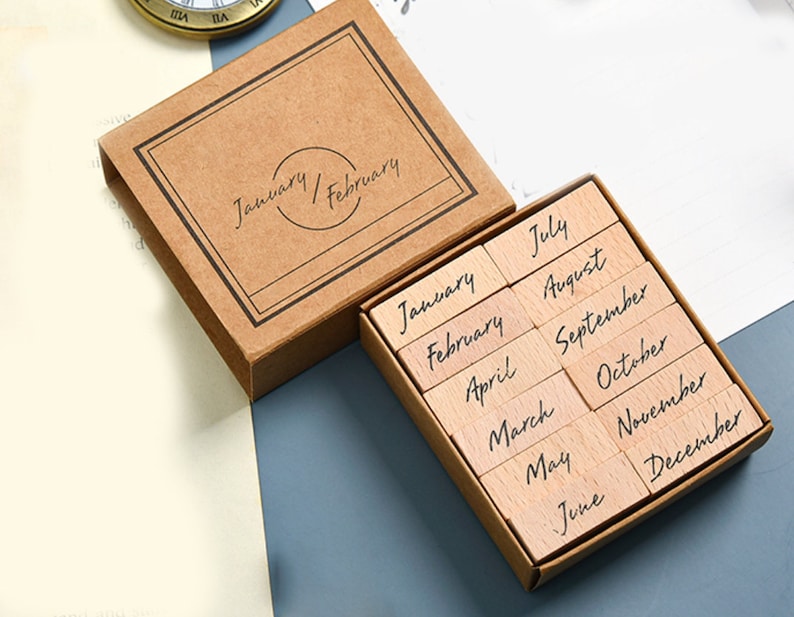 VIII VII VI
January / February
January
February
April
March
May
June
July
August
September
October
November
December